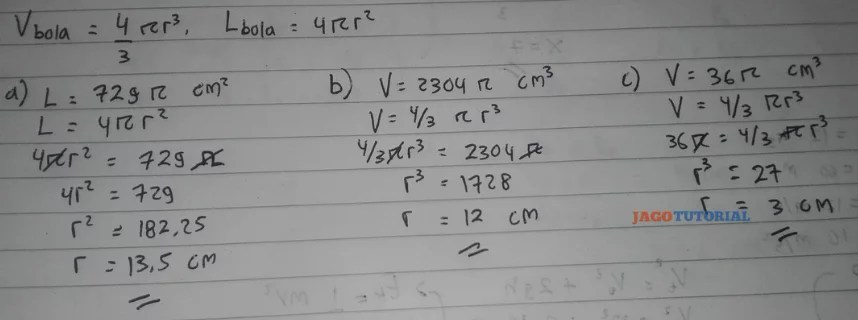 V bola = 4/3 πr³. L bola = 4πr²
a) L = 729 π cm²
L = 4πr²
4πr² = 729 π
4r² = 729
r² = 182,25
r = 13,5 cm
b) V = 2304 π cm³
V = 4/3 π r³
4/3 πr³ = 2304 π
r³ = 1728
r = 12 cm
c) V = 36π cm³
V = 4/3 πr³
36π = 4/3 πr³
r³ = 27
r = 3 cm
JAGOTUTORIAL